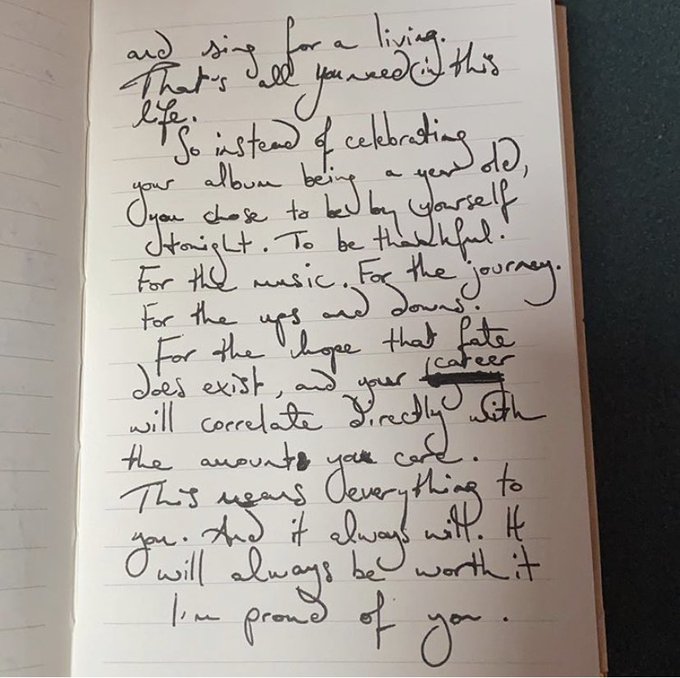 and sing for a living.
That's all you need in this
life.
So instead of celebrating
your album being a year old,
you chose to be by yourself
tonight. To be thankful.
For the music. For the journey.
For the ups and downs.
For the hope that fate
does exist, and your career
will correlate directly with
the amount you care.
This means everything to
you. And it always will. It
will always be worth it
I'm proud of you.